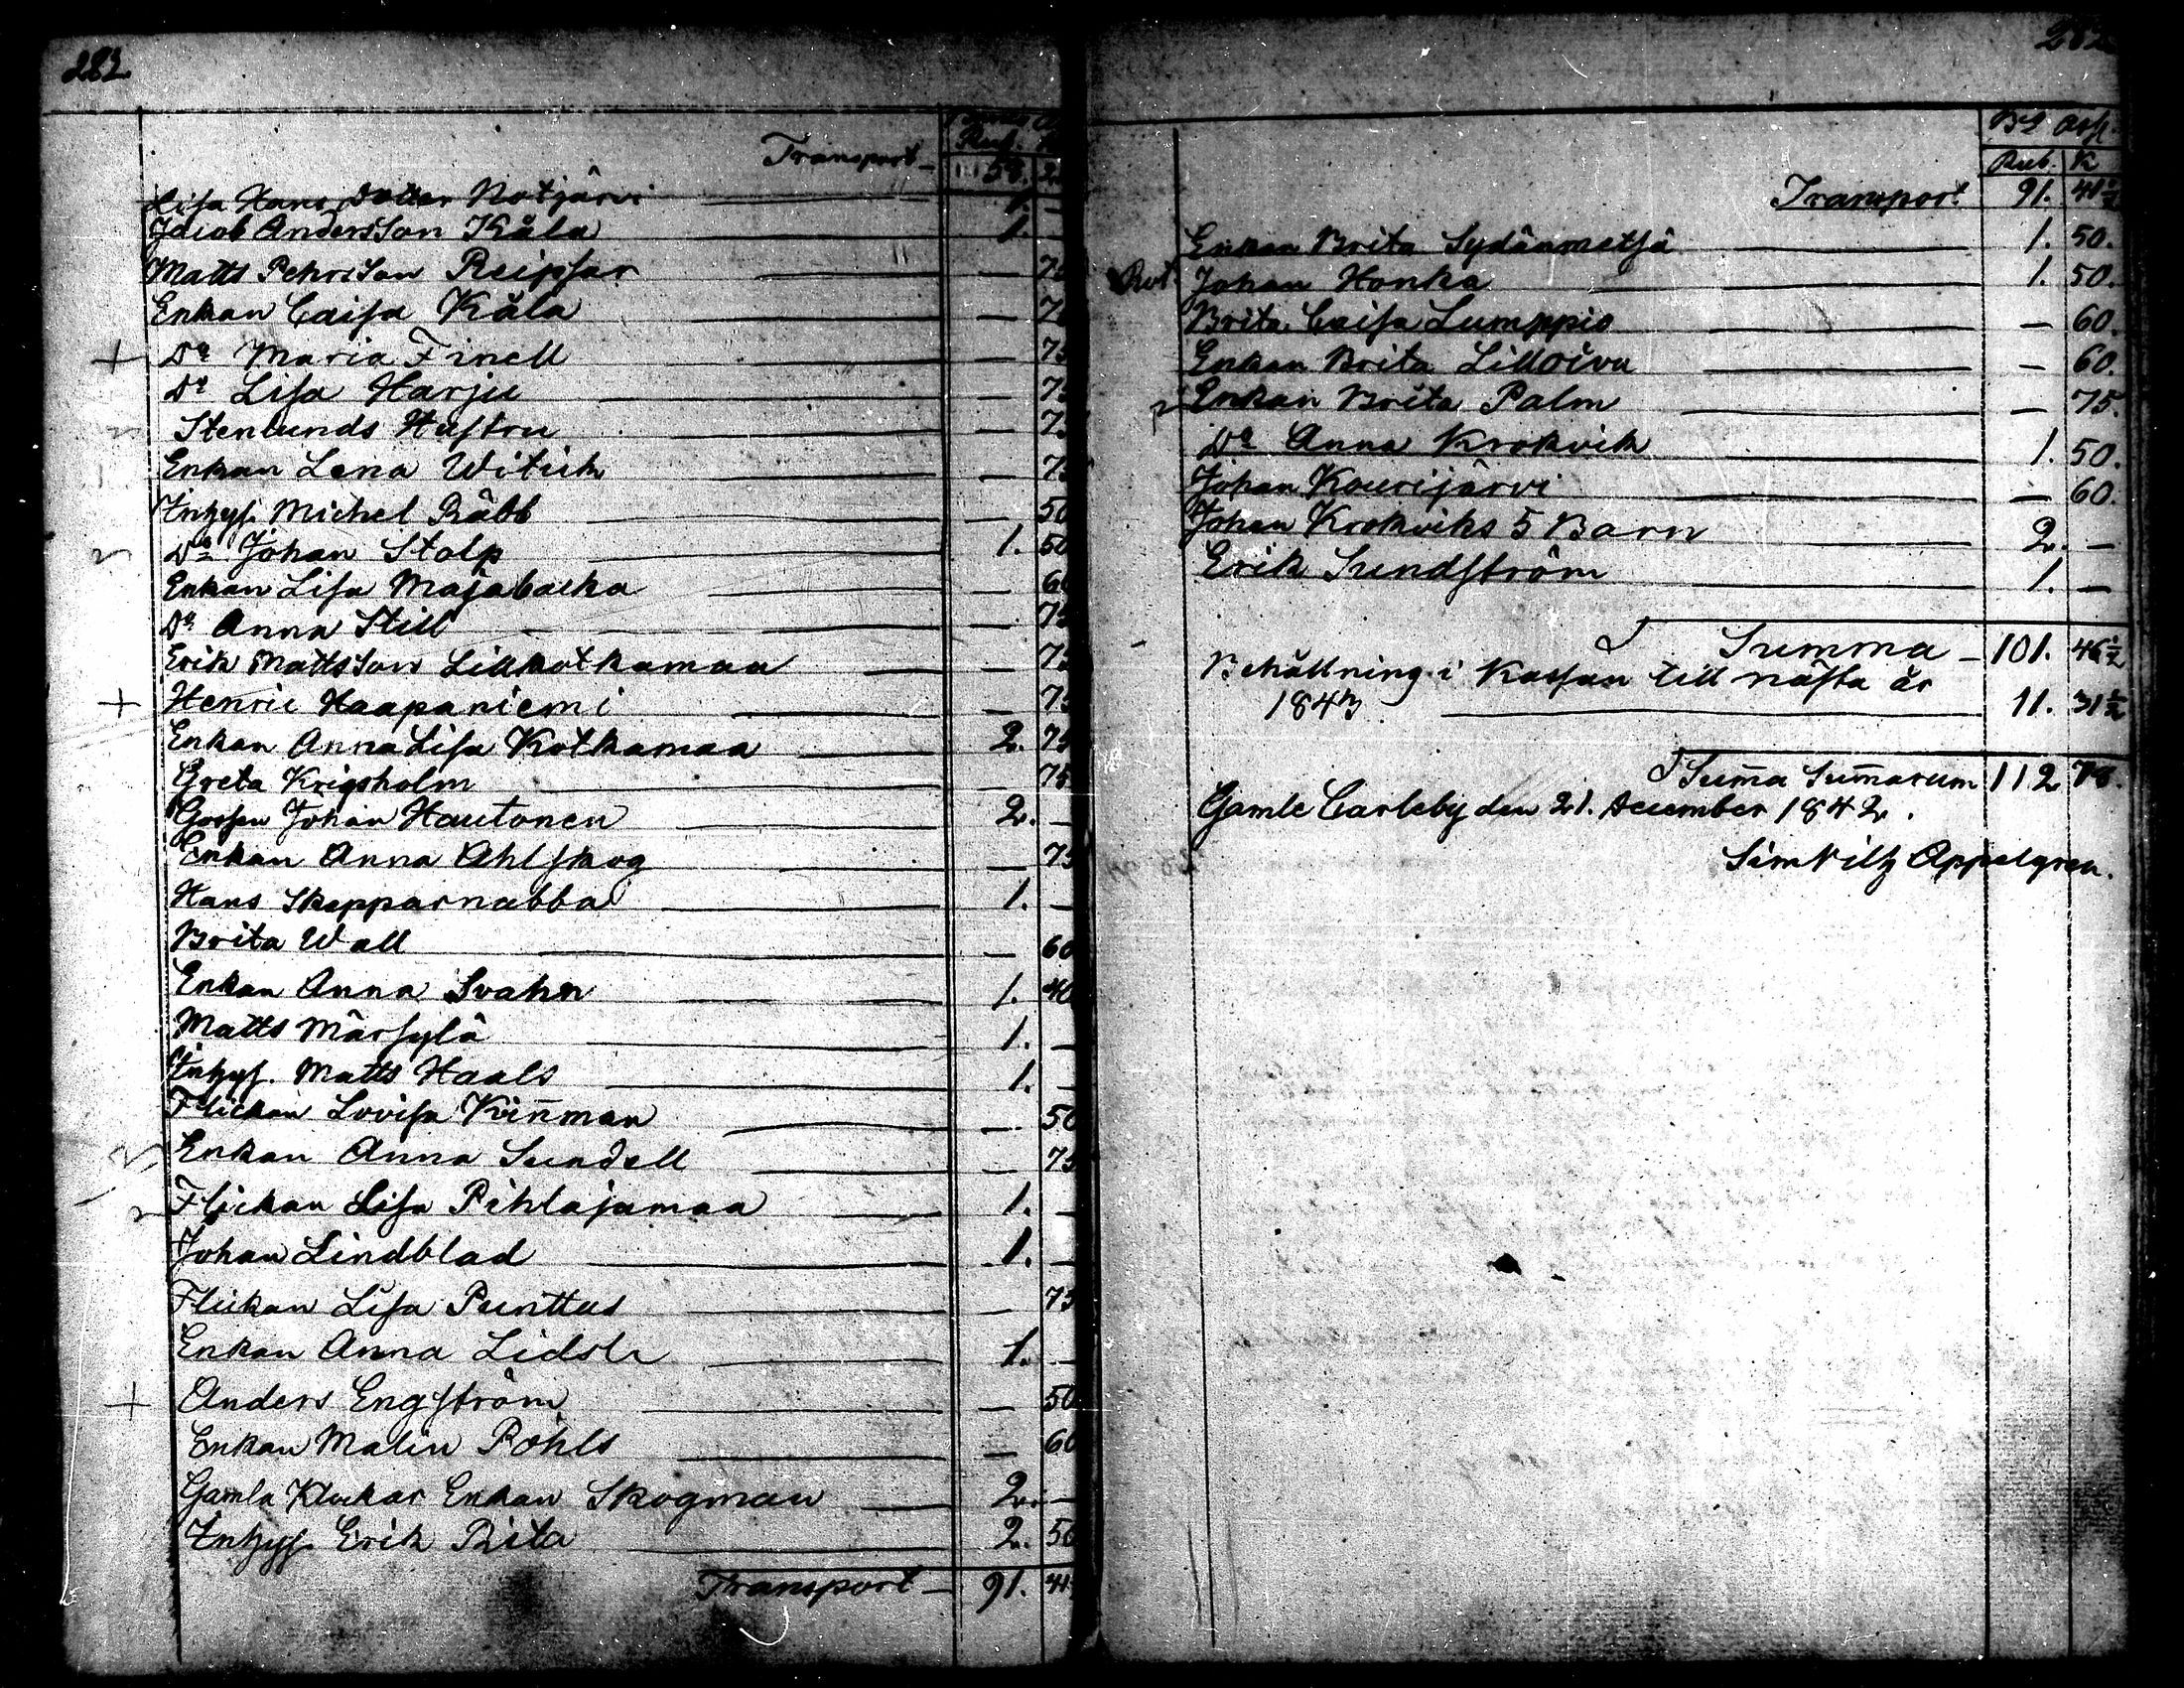 282
Rub.
Transport — 58.
Lisa Hans dotter Kotjärvi 1. —
Jacob Andersson Kåla 1. —
Matts Pehrsson Reipsar — 75
Enkan Caisa Kåla — 75
Dº Maria Finell — 75
Dº Lisa Harju — 75
Stenlunds Hustru — 75
Enkan Lena Witick — 75
Inhys. Michel Räbb — 50
Dº Johan Stolp 1. 50
Enkan Lisa Majabacka — 60
Dº Anna Still — 75
Erik Mattsson Lillkotkamaa — 75
Henric Haapaniemi — 75
Enkan Anna Lisa Kotkamaa 2. 75
Greta Krigsholm — 75
Gossen Johan Hautonen 2. —
Enkan Anna Ahlskog — 75
Hans Skepparnabba 1. —
Brita Wall — 60
Enkan Anna Svahn 1. 40
Matts Märsylä 1. —
Inhys. Matts Haals 1. —
Flickan Lovisa Kin̄man — 50
Enkan Anna Sundell — 75
Flickan Lisa Pihlajamaa 1. —
Johan Lindblad 1. —
Flickan Lisa Punttus — 75
Enkan Anna 1. —
Anders Engström — 50
Enkan Malin Röhls — 60
Gamla Klockar Enkan Skogman 2. —
Inhys. Erik Rita 2. 50
Transport — 91. 41
282
Bº Ass.
Rub. K
Transport 91. 41½
Enkan Brita Sydänmetsä 1. 50.
Rot. Johan Honka 1. 50.
Brita Caisa Lumppio — 60.
Enkan Brita Lilloivu — 60.
Enkan Brita Palm — 75.
Dº Anna Krokvik 1. 50.
Johan Kourijärvi — 60.
Johan Krokviks 5 Barn 2. —
Erik Sundström 1. —
Summa — 101. 46½
Behållning i Kassan till nästa år
1843 11. 31½
Sum̄a Sum̄arum 112 78.
Gamle Carleby den 21. December 1842.
Sim Vilh Appelgren.